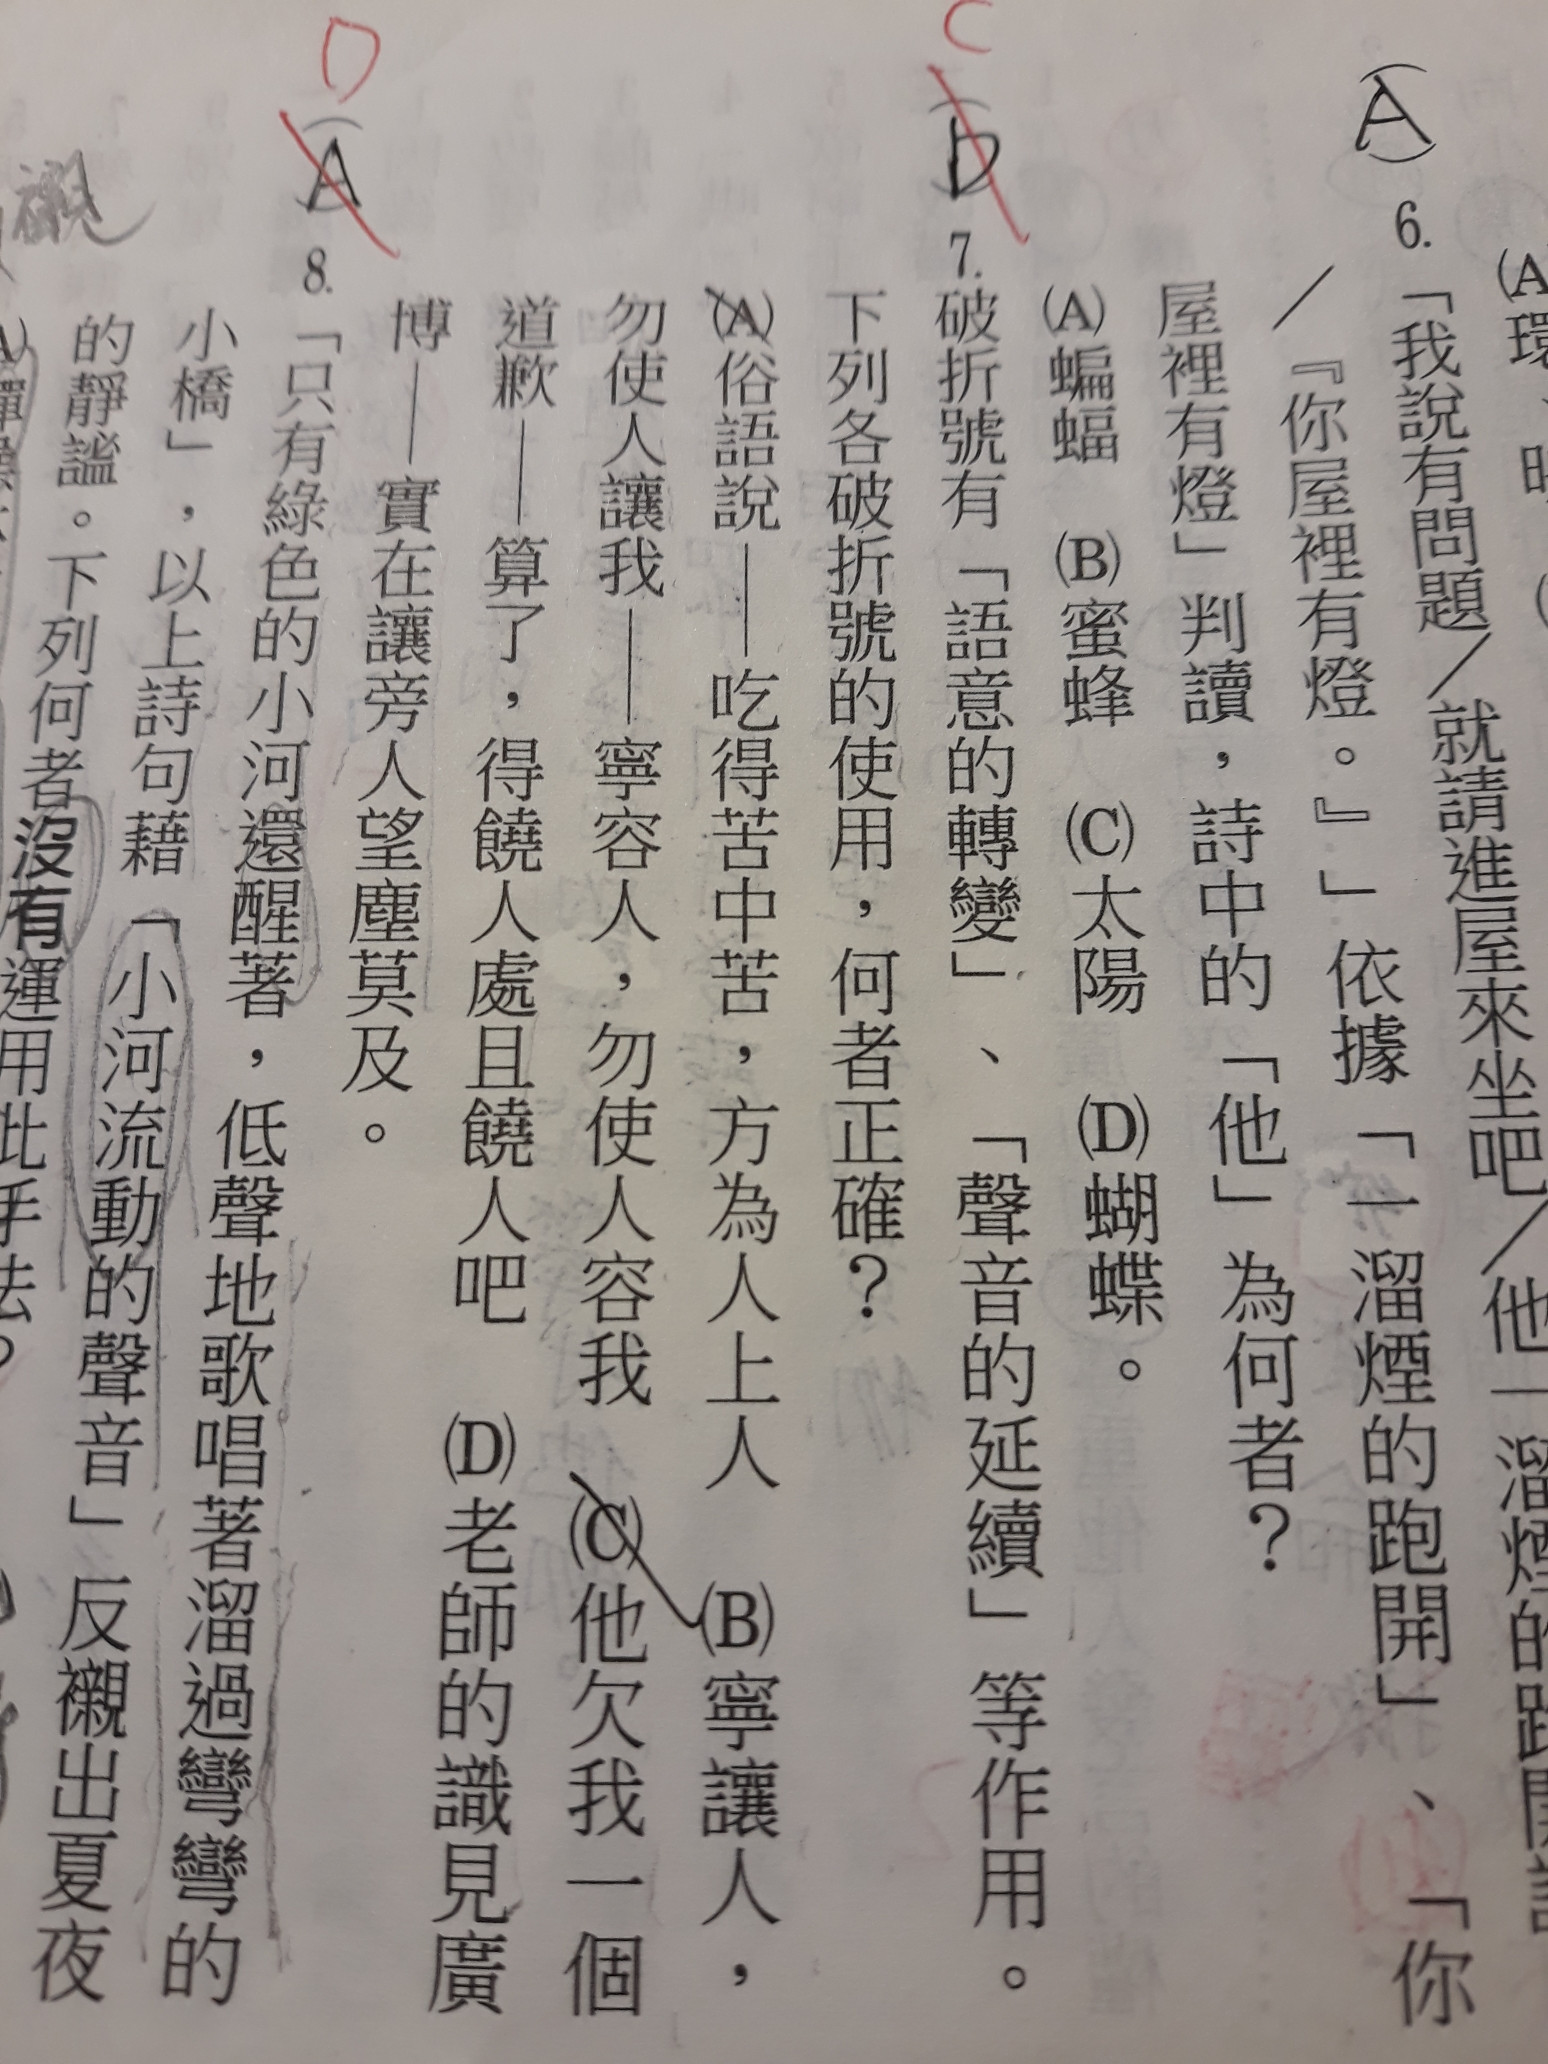 (A環、
A
6.「我說有問題／就請進屋來坐吧／他一溜煙的跑開
／『你屋裡有燈。』」依據「一溜煙的跑開」、「你
屋裡有燈」判讀，詩中的「他」為何者？
(A)蝙蝠 (B)蜜蜂 (C)太陽 (D)蝴蝶。
C
D
7.破折號有「語意的轉變」、「聲音的延續」等作用。
下列各破折號的使用，何者正確？
(A)俗語說——吃得苦中苦，方為人上人 (B)寧讓人，
勿使人讓我——寧容人，勿使人容我 (C)他欠我一個
道歉——算了，得饒人處且饒人吧 (D)老師的識見廣
博——實在讓旁人望塵莫及。
D
A
8.「只有綠色的小河還醒著，低聲地歌唱著溜過彎彎的
小橋」，以上詩句藉「小河流動的聲音」反襯出夏夜
的靜謐。下列何者沒有運用此手法？
襯